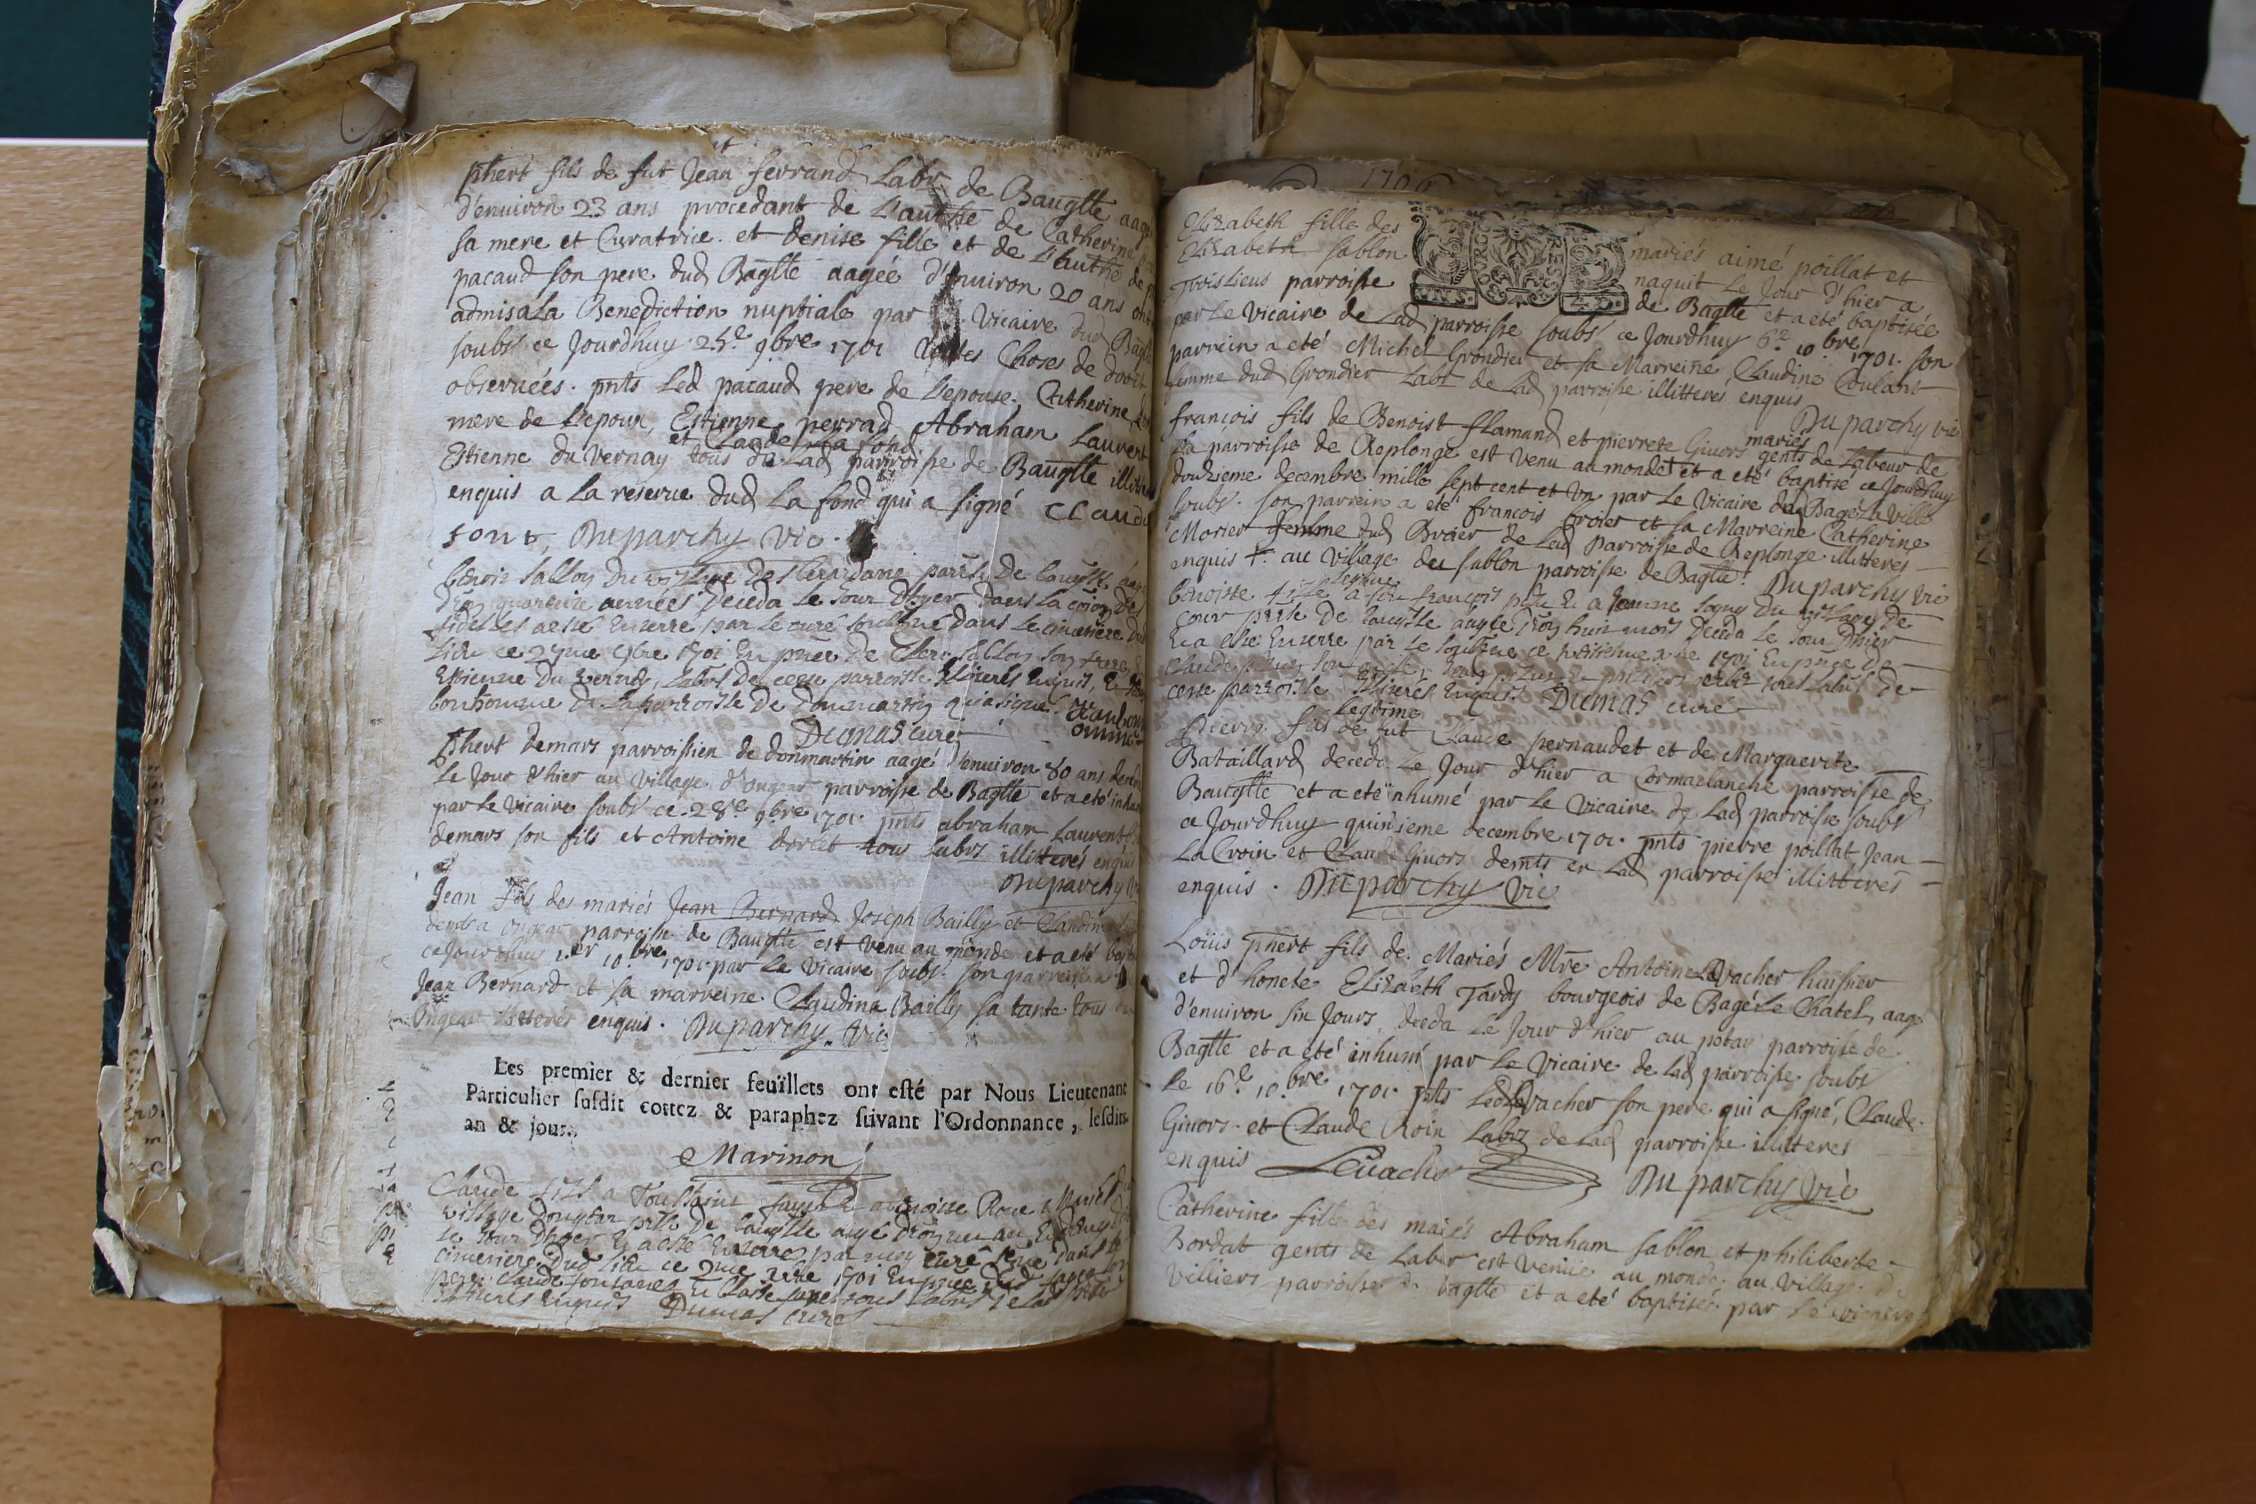 phert fils de fut Jean ferrand Labr de Baugtte aagé
d'environ 23 ans procedant de L'authté de Catherine
sa mere et Curatrice. et denise fille et de L'authté de
pacaud son pere dud Bagtte aagée d'environ 20 ans ont
admis a La Benediction nuptiale par Vicaire dud Bagtte
soubs ce Jourdhuy 25e 9bre 1701 toutes Choses de droit
observées. pnts Led pacaud pere de L'epouse. Catherine
mere de L'epoux, Estienne perrad, Abraham Laurent
et Claude La fond
Estienne du Vernay tous de Lad parroisse de Baugtte illit
enquis a La reserve dud La fond qui a signé CLaude
font, Duparchy vic.
benoit sallon du village des
quarente années deceda le Jour d'hyer dans la
fidelles a esté Enterré par le curé soussigné dans le cimetiere
lieu ce 27me 9bre 1701 En pnce de sallon son frere
Estienne Du vernay, Labrs de cette parroisse Illiterés enquis, et
bonhomme de la parroisse de dommartin qui a signé.
Dumas curé
phert demars parroissien de donmartin aagé d'environ 80 ans
Le Jour d'hier au village d'ongear parroisse de Bagtte et a eté inhu
par Le Vicaire soubs ce 28e 9bre 1701. pnts abraham Laurent
demars son fils et Antoine tous Labrs illitterés enquis
Duparchy
Jean fils des mariés Jean Bernard Joseph Bailly et Claudine
demts a ongear parroisse de Baugtte est venu au monde et a eté
ce Jourdhuy 1.er 10.bre 1701. par Le Vicaire soubs. son parrein a
Jean Bernard et sa marreine Claudine Bailly sa tante tous
Ongear illiterés enquis. Duparchy. vic
Les premier & dernier feüillets ont esté par Nous Lieutenant
Particulier susdit cottez & paraphez suivant l'Ordonnance, lesdits
an & jour.
Marinon
Claude fils a Toussaint
village Dongear psse De baugtte
le Jour D'hyer Et a esté Enterré par moy curé
cimetiere Dud lieu ce 2me Xbre 1701 En pnce dud
pere. Claude
Illiterés Enquis Dumas curé
1706
Elizabeth fille des mariés aimé poillat et
Elizabeth sablon naquit Le Jour d'hier a
Trois Lieus parroisse de Bagtte et a eté baptisée
par Le Vicaire de Lad parroisse soubs ce Jourdhuy 6e 10.bre 1701. son
parrein a eté Michel Grondier et sa Marreine Claudine Coulans
femme dud Grondier Labr de Lad parroisse illitterés enquis
Duparchy vic
françois fils de Benoist flamand et pierrete Givors mariés gents de Labeur de
La parroisse de Replonge est venu au monde + et a eté baptisé ce Jourdhuy
douzieme decembre mille sept cent et Un par Le Vicaire de Bagé La Ville
soubs. son parrein a eté francois Broier et sa Marreine Catherine
Morier femme dud Broier de Lad Parroisse de Replonge illitterés
enquis + au Village deu sablon parroisse de Bagtte. Duparchy vic
benoiste fille legitime a feu françois et a Jeanne du village de
cour psse de baugtle aagée huit mois Deceda le Jour D'hier
Et a esté Enterré par le soussigné ce 1701 En pnce de
Claude son
cette parroisse Illiterés Enquis. Dumas curé
Pierre fils Legitime de fut Claude pernaudet et de Marguerite
Bataillard deceda Le Jour d'hier a Cormaclanche parroisse de
Baugtte et a eté inhumé par Le Vicaire de Lad parroisse soubs
ce Jourdhuy quinzieme decembre 1701. pnts pierre poillat Jean
La Croix et Claude Givors demts en Lad parroisse illitterés
enquis. Duparchy vic
Loüis phert fils de Mariés Mre Antoine Levacher huissier
et d'honete Elizabeth Tardy bourgeois de Bagé Le Chatel, aagé
d'environ six Jours, deceda Le Jour d'hier au potay parroisse de
Bagtte et a eté inhumé par Le Vicaire de Lad parroisse soubs
Le 16e 10.bre 1701. pnts Led Levacher son pere qui a signé, Claude
Givors et Claude Roin Labrs de Lad parroisse illitteres
enquis Levacher Duparchy vic
Catherine fille des mariés Abraham sablon et philiberte
Bordat gents de Labr est venüe au monde au village de
Villiers parroisse de bagtte et a eté baptisée par Le vicaire